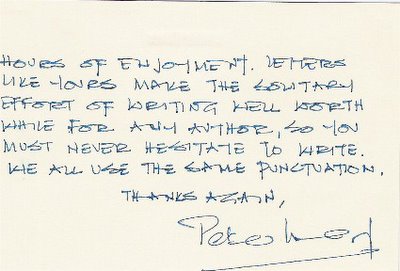 HOURS OF ENJOYMENT. LETTERS
LIKE YOURS MAKE THE SOLITARY
EFFORT OF WRITING WELL WORTH
WHILE FOR ANY AUTHOR, SO YOU
MUST NEVER HESITATE TO WRITE.
WE ALL USE THE SAME PUNCTUATION.
THANKS AGAIN,
Peter